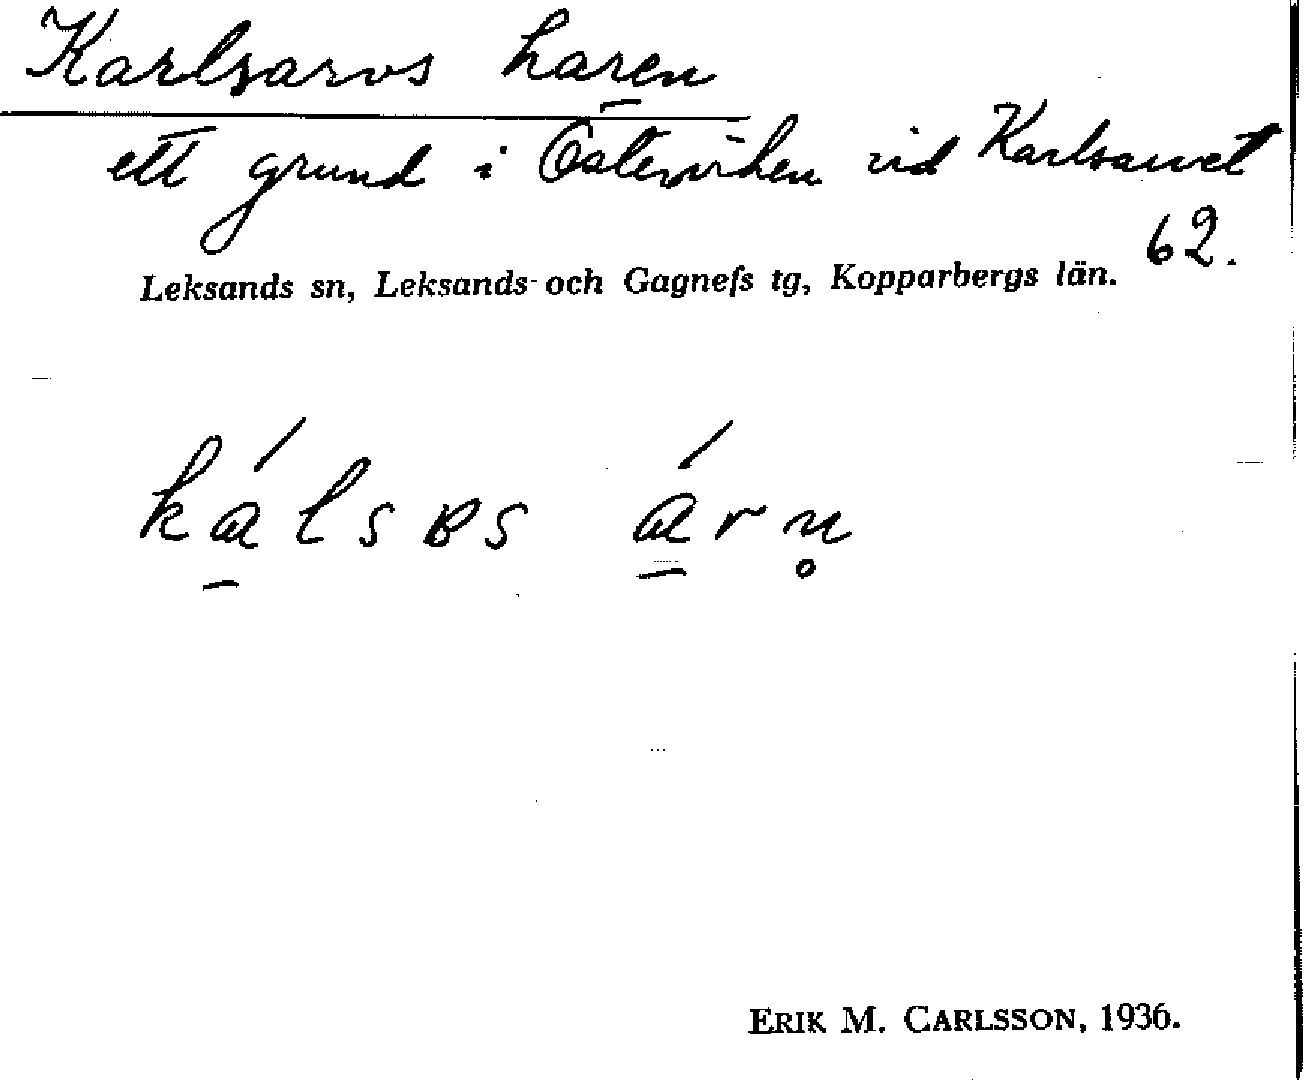 Karlsarvs haren
ett grund i Österviken vid Karlsarvet
62.
Leksands sn, Leksands- och Gagnefs tg, Kopparbergs län.
ERIK M. CARLSSON, 1936.